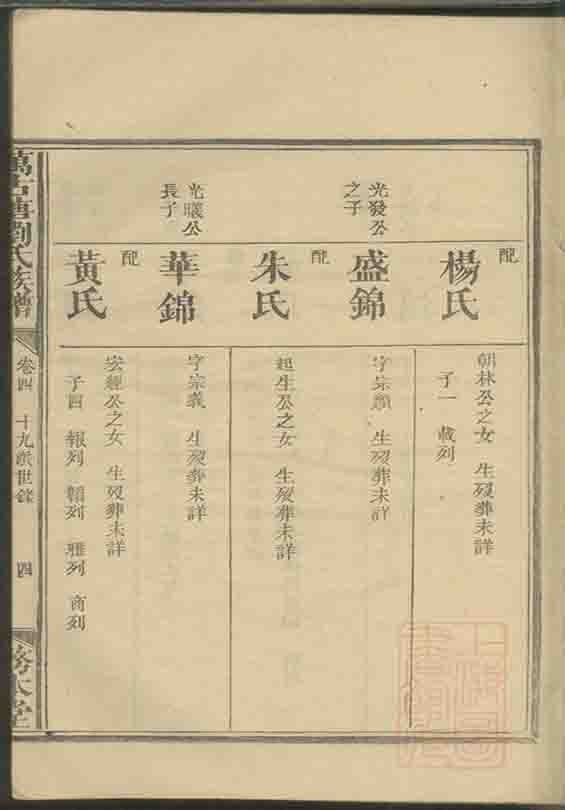 配
楊氏
朝林公之女 生歿葬未詳
子一 載列
光發公
之子
盛錦
字宗顯 生歿葬未詳
配
朱氏
起生公之女 生歿葬未詳
光曦公
長子
華錦
字宗義 生歿葬未詳
配
黃氏
宏經公之女 生歿葬未詳
子四 報列 朝列 雅列 商列
劉氏族譜
卷四 十九派世錄 四